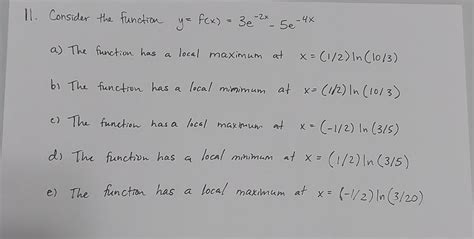 11. Consider the function y = f(x) = 3e^-2x - 5e^-4x
a) The function has a local maximum at x = (1/2) ln (10/3)
b) The function has a local minimum at x = (1/2) ln (10/3)
c) The function has a local maximum at x = (-1/2) ln (3/5)
d) The function has a local minimum at x = (1/2) ln (3/5)
e) The function has a local maximum at x = (-1/2) ln (3/20)